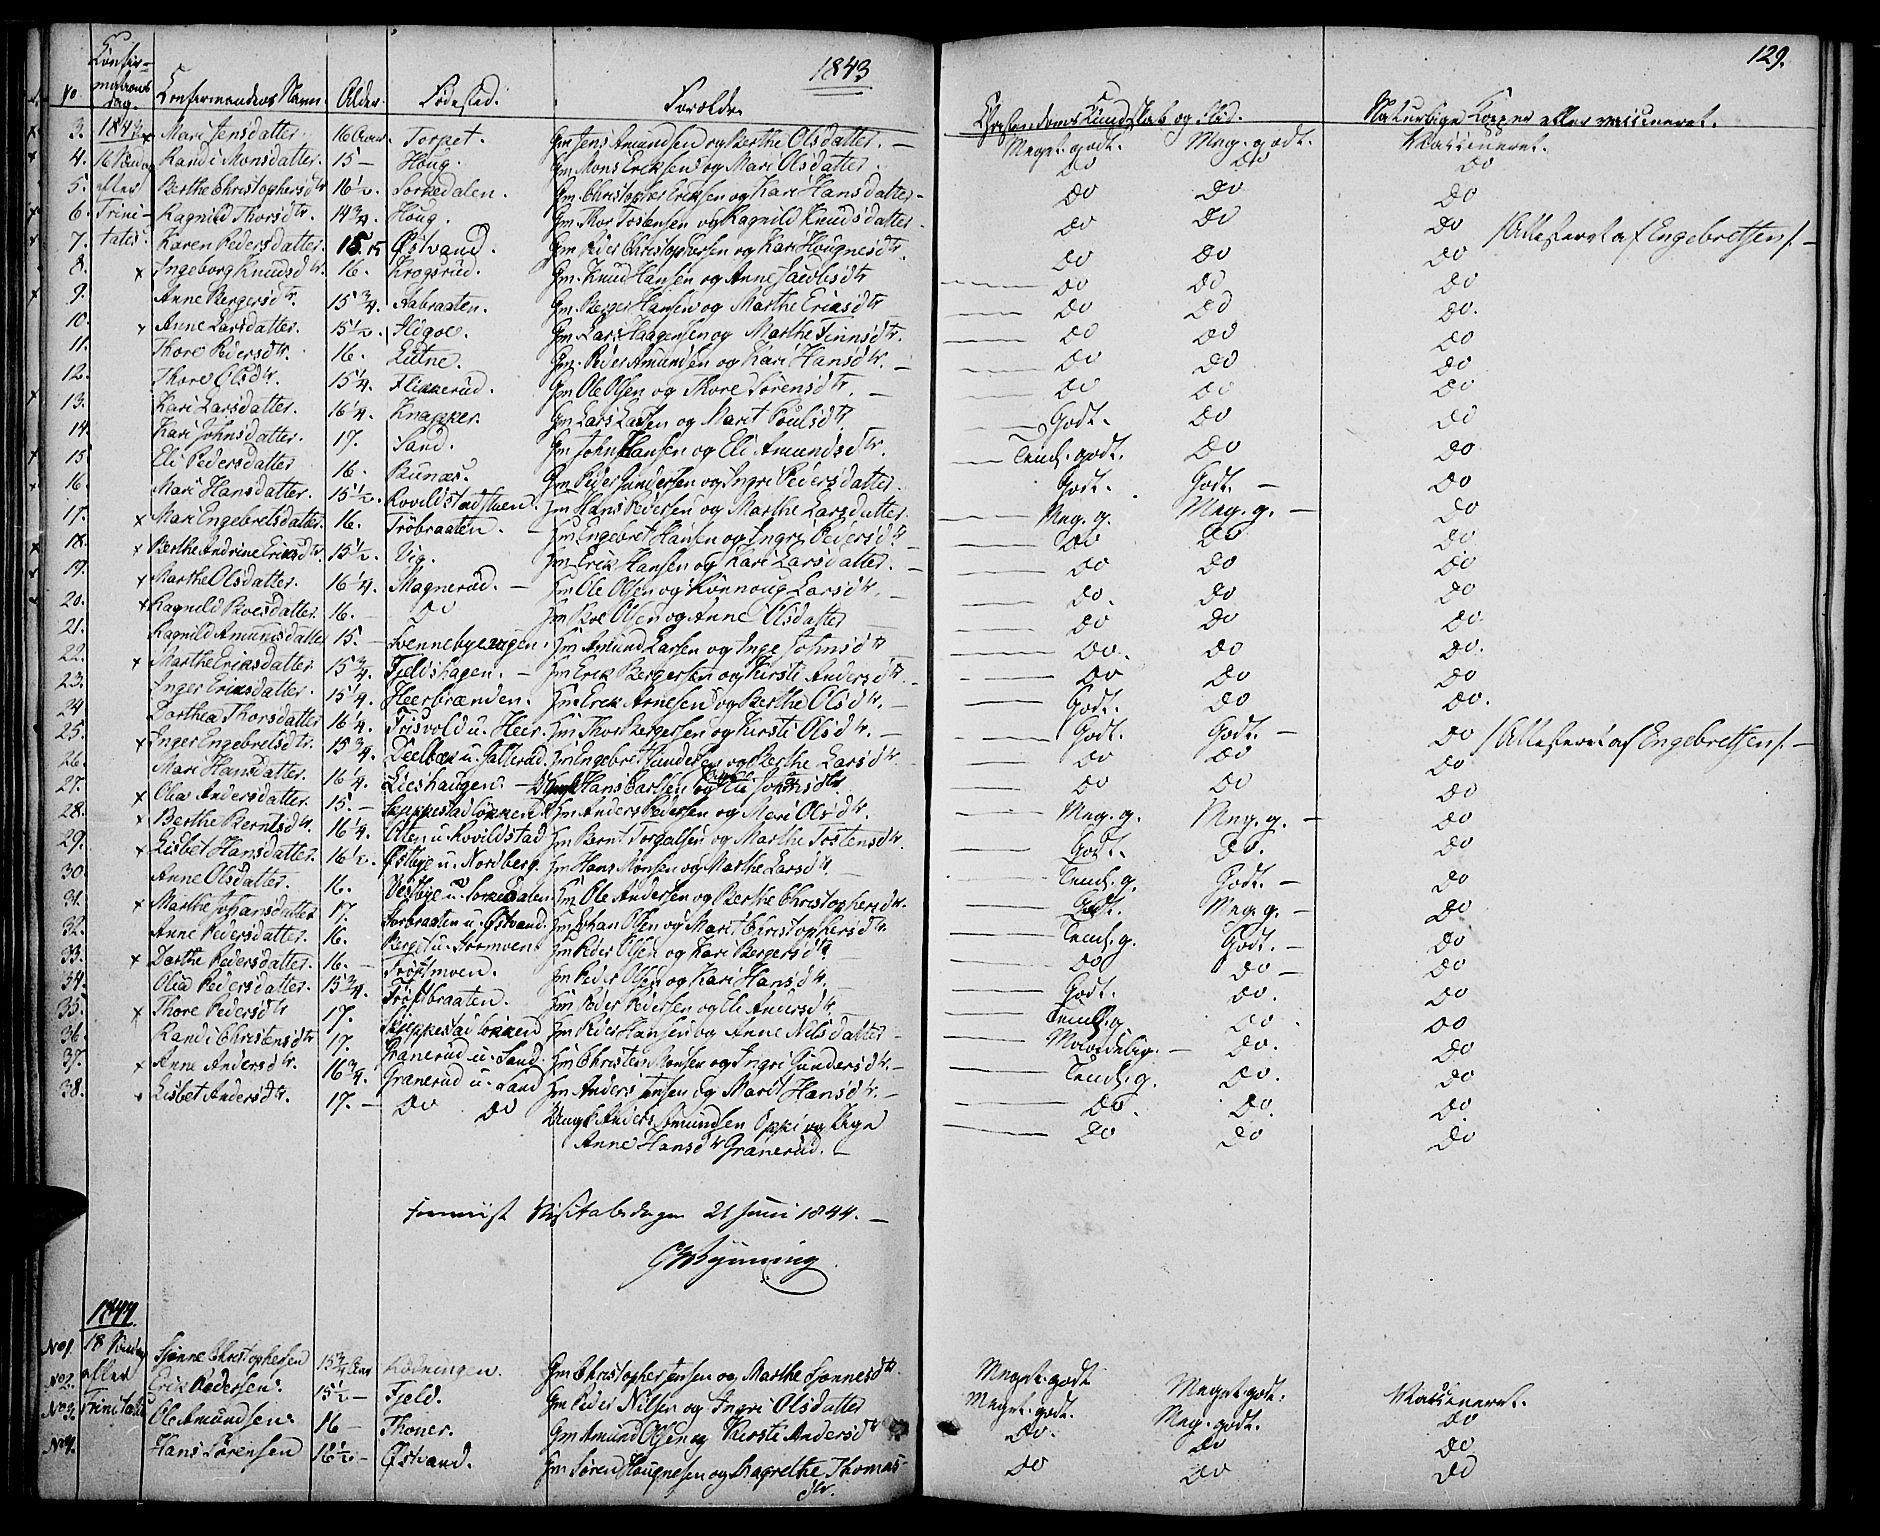 1843 129.
No. Confirmations dag. Confirmandens Navn. Alder. Fødested. Forældre Christendoms Kundskab og Flid. Naturlige Kopper eller vaccineret.
3. 1843 Mari Jensdatter. 16 Aar. Torpet. Gm Jens Amundsen og Berthe Olsdatter. Meget godt. Meg. godt. Vaccineret.
4. 16 Randi Monsdatter. 15 – Houg. Gm Mons Eriksen og Mari Olsdatter do do do
5. efter Berthe Christophersdtr 16½. Sorkedalen. Gm Christopher Eriksen og Kari Hansdatter do do do
6. Trini- Ragnild Thorsdtr. 14¾. Houg. Gm Thor Tostensen og Ragnild Knudsdatter do do do /Attesteret af Engebretsen/. –
7. tatis. Karen Pedersdatter. 15. Østvand. Gm Peder Christophersen og Kari Hougnesdtr. do do do
8. Ingeborg Knudsdtr. 16. Krogsrud. Gm Knud Hansen og Anne Jacobsdtr do do do
9. Anne Bergersdtr. 15¾. Aabraaten. Gm Berger Hansen og Marthe Eriksdtr do do do.
10. Anne Larsdatter. 15½. Gm Lars Haagensen og Marthe Finnsdtr. do do do
11. Thore Pedersdtr. 16. Lutne. Gm Peder Amundsen og Kari Hansdtr. – do do do
12. Thore Olsdtr. 15¼. Flikkerud. Gm Ole Olsen og Thore Sørensdtr. – do do do
13. Kari Larsdatter. 16¼. Knapper. Gm Lars Larsen og Marit Poulsdtr. Godt. do do
14. Kari Johnsdatter. 17. Sand. Gm John Hansen og Eli Amundsdtr. Teml. godt. do do
15. Eli Pedersdatter 16. Bunæs. Gm Peder Gundersen og Ingri Pedersdatter. Godt. Godt. – do
16. Mari Hansdatter. 15½. Rovildstadstuen. Gm Hans Pedersen og Marthe Larsdatter. Meg. g. Meg. g. – do
17. Mari Engebretsdatter. 16. Trøbraaten. Gm Engebret Hansen og Ingri Pedersdtr. do do do
18. Berthe Andrine Eriksdtr. 15½. Vig. Gm Erik Hansen og Kari Larsdatter. do do do
19. Marthe Olsdatter. 16¼. Magnerud. – Gm Ole Olsen og Rønnoug Larsdtr. do. do do
20. Ragnild Boesdatter. 16. do Gm Boe Olsen og Anne Olsdatter do do do
21. Ragnild Amundsdatter 15. – Gm Amund Larsen og Inge Johnsdtr do. do do.
22. Marthe Eriksdatter. 15¾. Fjeldshagen. – Gm Erik Bergersen og Kirsti Andersdtr. do do do
23. Inger Eriksdatter. 15¼. Heerbraaden. Gm Erik Arnesen og Berthe Olsdtr. – Godt. do do.
24 Dorthea Thorsdatter 16¼. Trisvold u. Heer. Gm Thor Bergersen og Kirsti Olsdtr. – Godt. Godt. – do /Attesteret af Engebretsen/. –
25. Inger Engebretsdtr. 15¾. Gm Engebret Gundersen og Berthe Larsdtr. do do do
26. Mari Hansdatter. 16¼. Lieshaugen. Hans Carlsen og do do do
27. Olia Andersdatter. 15. – Skuppestadløkken Gm Anders Pedersen og Mari Olsdtr. Meg. g. Meg. g. – do
28. Berthe Berntsdtr. 16¼. Otten u. Rovildstad Gm Bernt Torgalsen og Marthe Tostensdtr. Godt. do. do
29. Lisbet Hansdatter. 16½. Østbye u. Nordberg. Gm Hans Monsen og Marthe Larsdtr. Teml. g. Godt. – do
30. Anne Olsdatter. 16. Vestbye u. Sorkedalen Gm Ole Andersen og Berthe Christophersdtr. Godt. Meg. g. – do
31. Marthe Johansdatter 17. Sorbraaten u. Østvand. Gm Johan Olsen og Marit Christophersdtr. Teml. g. Godt. – do
32. Anne Pedersdatter. 16. Berget u. Stormoen. Gm Peder Olsen og Kari Bergersdtr. do do – do
33. Dorthe Pedersdatter. 16. – Trøftmoen. Gm Peder Olsen og Kari Hansdtr. – Godt. do. do
34. Olia Pedersdatter. 15¾. Trøftbraaten. Gm Peder Pedersen og Eli Andersdtr. Teml. g. do do
35. Thore Pedersdtr 17. Skuppestadløkken Gm Peder Hansen og Anne Nilsdatter – Maadelig. – do. do
36. Randi Christensdtr 17. Granerud u. Sand. Gm Christen Monsen og Ingri Gundersdtr. – Teml. g. do. do
37. Anne Andersdtr. 16¾. Granerud u. Sand Gm Anders Jensen og Marit Hansdtr. – do. do. do
38. Lisbet Andersdtr. 17. – do do Ungk. Anders Amundsen Oppi og Pige do do do
Anne Hansdtr Granerud. –
Visitatsdagen 21 Juni 1844. –
1844.
No 1. 18 Søndag Sjønne Christophersen 15¾ Aar Gm Christopher Jensen og Marthe Sjonnesdtr. Meget godt Meget godt. Vaccineret.
No 2. efter Erik Pedersen. 15½ – Fjeld. Gm Peder Nilsen og Ingri Olsdatter Meget godt. Meg. godt. do
No 3. Trinitatis Ole Amundsen. 16 – Thoner. Gm Amund Olsen og Kirsti Andersdtr do. do do
No 4. Hans Sørensen 16½ – Østvand. Gm Søren Hougnesen og Magrethe Thomas- do do do
dtr.